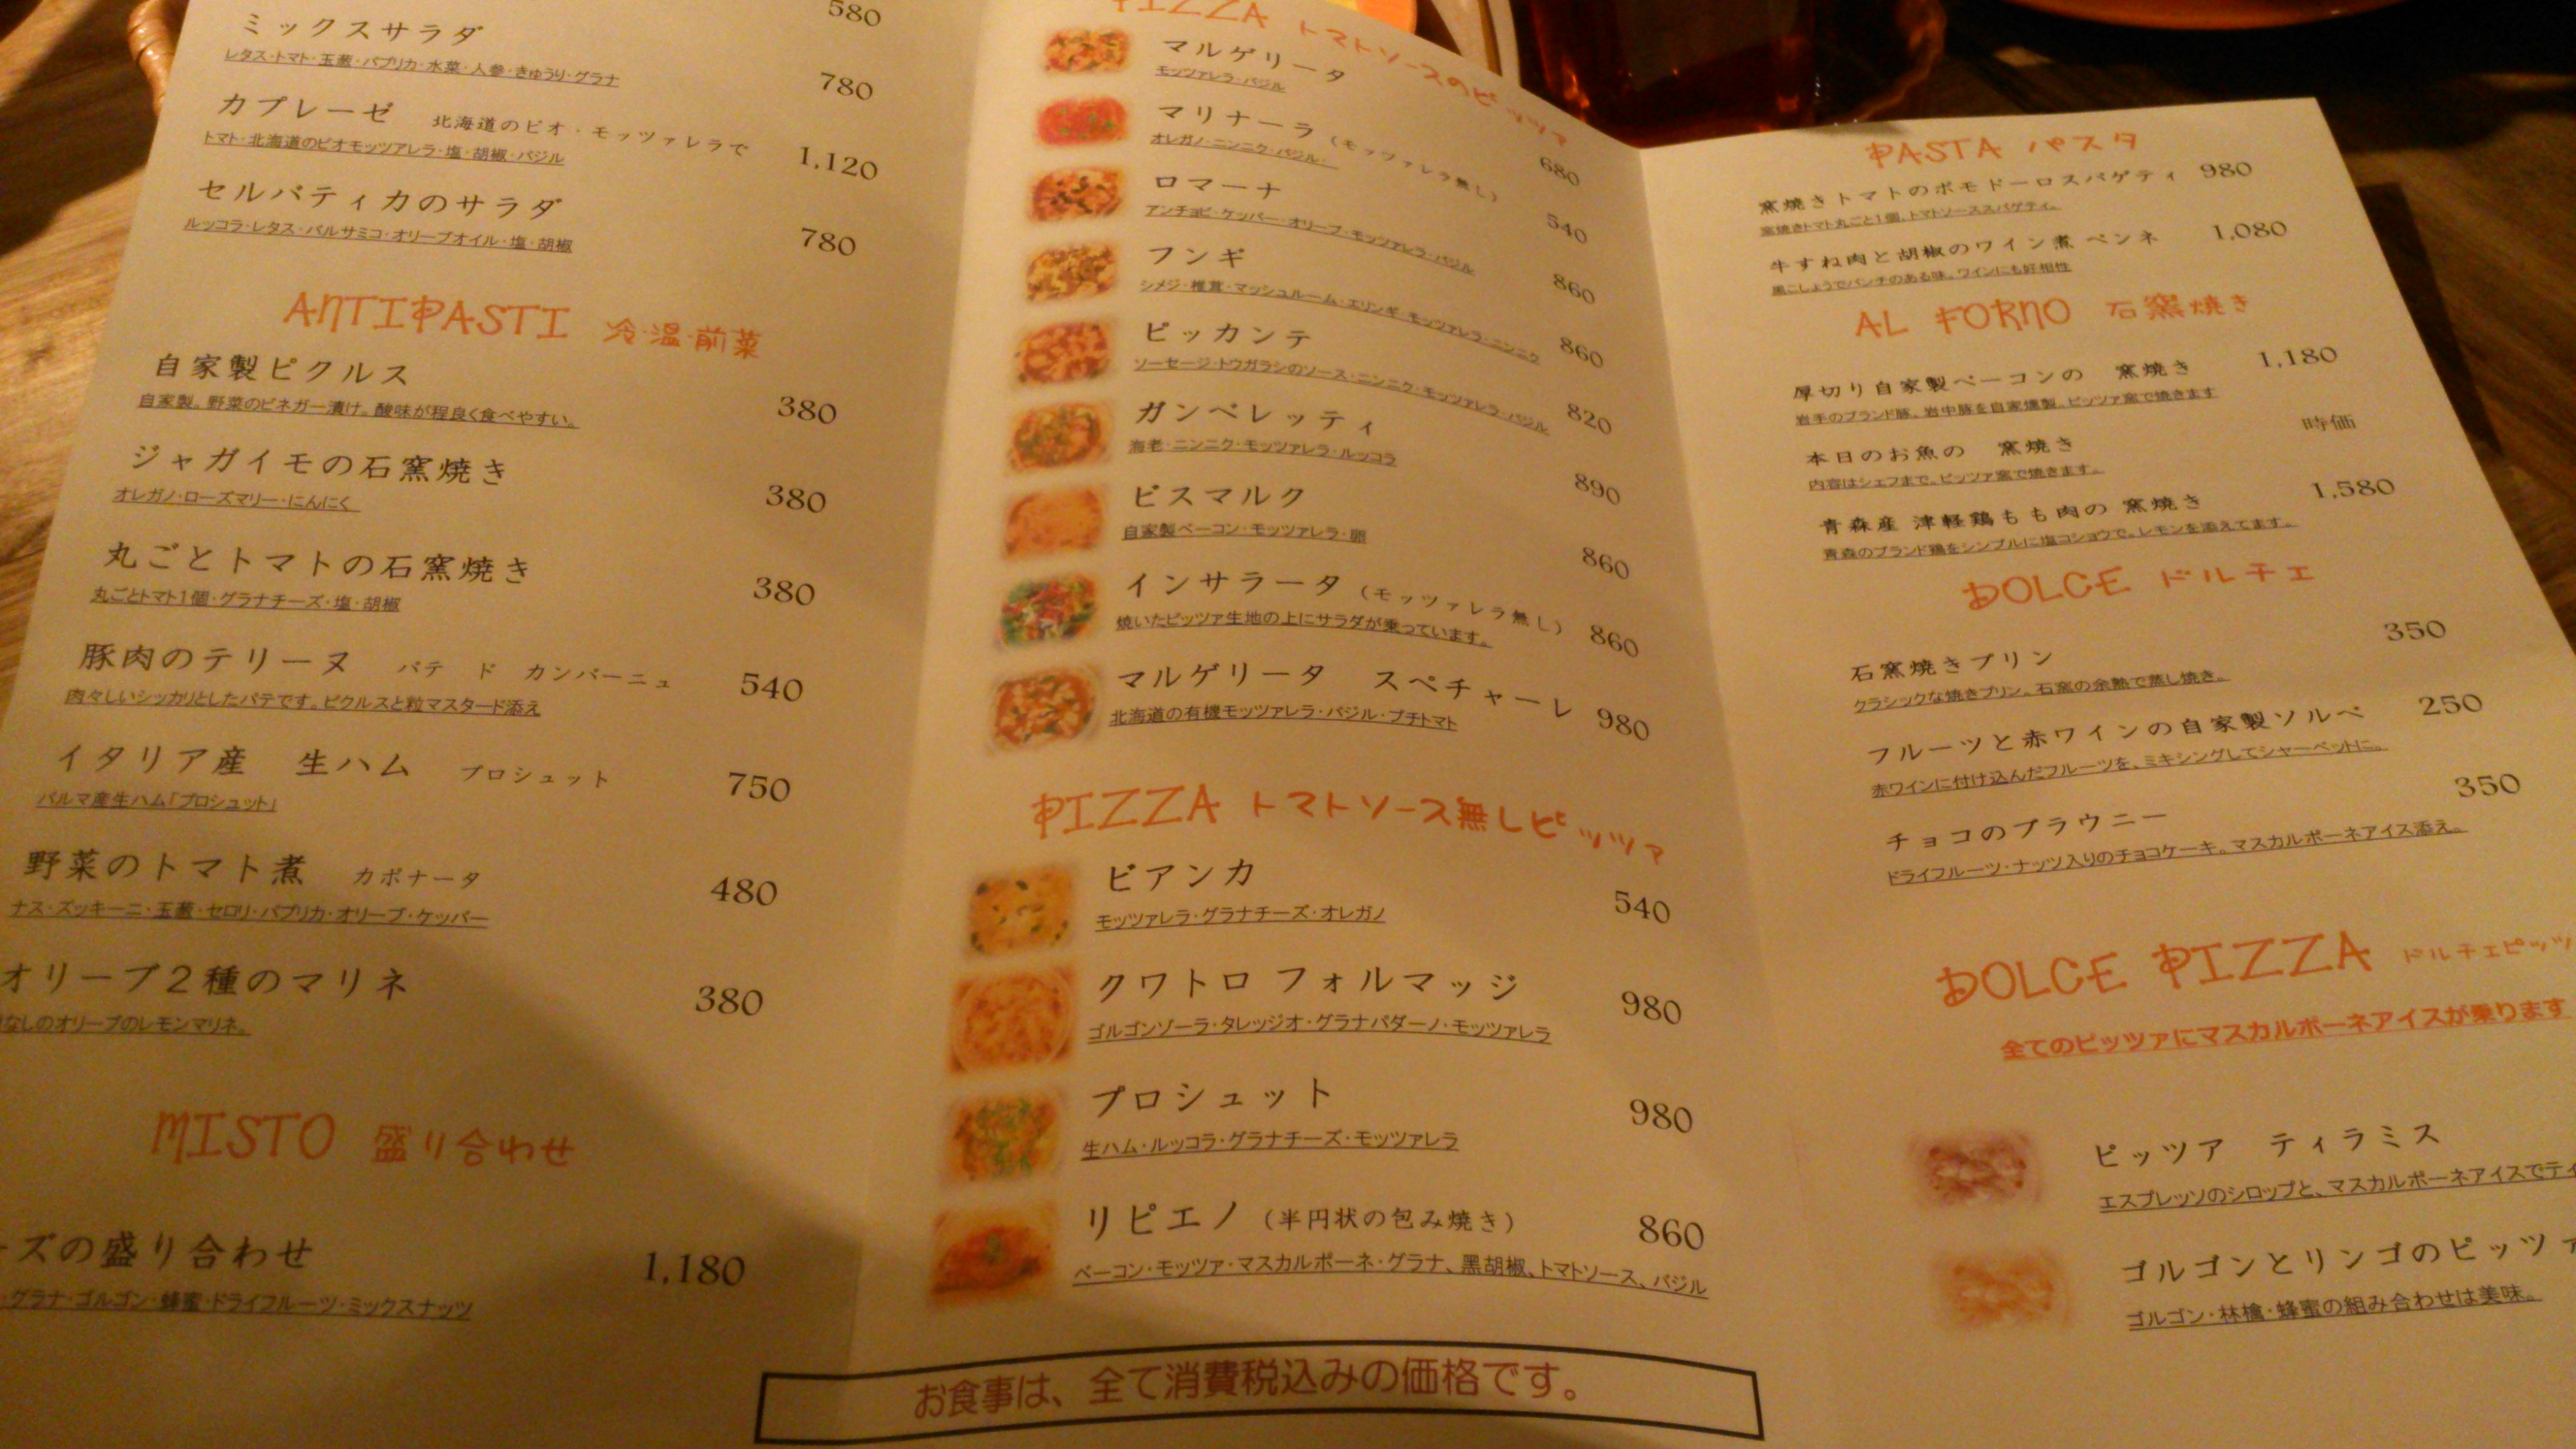 580
ミックスサラダ
レタス・トマト・玉葱・パプリカ・水菜・人参・きゅうり・グラナ
780
カプレーゼ 北海道のビオ・モッツァレラで
トマト・北海道のビオモッツアレラ・塩・胡椒・バジル
1,120
セルバティカのサラダ
ルッコラ・レタス・バルサミコ・オリーブオイル・塩・胡椒
780
ANTIPASTI 冷・温・前菜
自家製ピクルス
自家製。野菜のビネガー漬け。酸味が程良く食べやすい。
380
ジャガイモの石窯焼き
オレガノ・ローズマリー・にんにく
380
丸ごとトマトの石窯焼き
丸ごとトマト1個・グラナチーズ・塩・胡椒
380
豚肉のテリーヌ パテ ド カンパーニュ
肉々しいシッカリとしたパテです。ピクルスと粒マスタード添え
540
イタリア産 生ハム プロシュット
パルマ産生ハム「プロシュット」
750
野菜のトマト煮 カポナータ
ナス・ズッキーニ・玉葱・セロリ・パプリカ・オリーブ・ケッパー
480
オリーブ2種のマリネ
なしのオリーブのレモンマリネ。
380
MISTO 盛り合わせ
ーズの盛り合わせ
・グラナ・ゴルゴン・蜂蜜・ドライフルーツ・ミックスナッツ
1,180
PIZZA トマトソースのピッツァ
マルゲリータ
モッツァレラ・バジル
680
マリナーラ (モッツァレラ無し)
オレガノ・ニンニク・バジル・
540
ロマーナ
アンチョビ・ケッパー・オリーブ・モッツァレラ・バジル
860
フンギ
シメジ・椎茸・マッシュルーム・エリンギ・モッツァレラ・ニンニク
860
ピッカンテ
ソーセージ・トウガラシのソース・ニンニク・モッツァレラ・バジル
820
ガンベレッティ
海老・ニンニク・モッツァレラ・ルッコラ
890
ビスマルク
自家製ベーコン・モッツァレラ・卵
860
インサラータ (モッツァレラ無し)
焼いたピッツァ生地の上にサラダが乗っています。
860
マルゲリータ スペチャーレ
北海道の有機モッツァレラ・バジル・プチトマト
980
PIZZA トマトソース無しピッツァ
ビアンカ
モッツァレラ・グラナチーズ・オレガノ
540
クワトロ フォルマッジ
ゴルゴンゾーラ・タレッジオ・グラナパダーノ・モッツァレラ
980
プロシュット
生ハム・ルッコラ・グラナチーズ・モッツァレラ
980
リピエノ (半円状の包み焼き)
ベーコン・モッツァ・マスカルポーネ・グラナ、黒胡椒、トマトソース、バジル
860
お食事は、全て消費税込みの価格です。
PASTA パスタ
窯焼きトマトのポモドーロスパゲティ 980
窯焼きトマト丸ごと1個、トマトソーススパゲティ。
牛すね肉と胡椒のワイン煮 ペンネ 1,080
黒こしょうでパンチのある味。ワインにも好相性
AL FORNO 石窯焼き
厚切り自家製ベーコンの 窯焼き 1,180
岩手のブランド豚、岩中豚を自家燻製。ピッツァ窯で焼きます
本日のお魚の 窯焼き 時価
内容はシェフまで。ピッツァ窯で焼きます。
青森産 津軽鶏もも肉の 窯焼き 1,580
青森のブランド鶏をシンプルに塩コショウで。レモンを添えてます。
DOLCE ドルチェ
石窯焼きプリン 350
クラシックな焼きプリン。石窯の余熱で蒸し焼き。
フルーツと赤ワインの自家製ソルベ 250
赤ワインに付け込んだフルーツを、ミキシングしてシャーベットに。
チョコのブラウニー 350
ドライフルーツ・ナッツ入りのチョコケーキ。マスカルポーネアイス添え。
DOLCE PIZZA ドルチェピッツ
全てのピッツァにマスカルポーネアイスが乗ります
ピッツア ティラミス
エスプレッソのシロップと、マスカルポーネアイスでティ
ゴルゴンとリンゴのピッツァ
ゴルゴン・林檎・蜂蜜の組み合わせは美味。